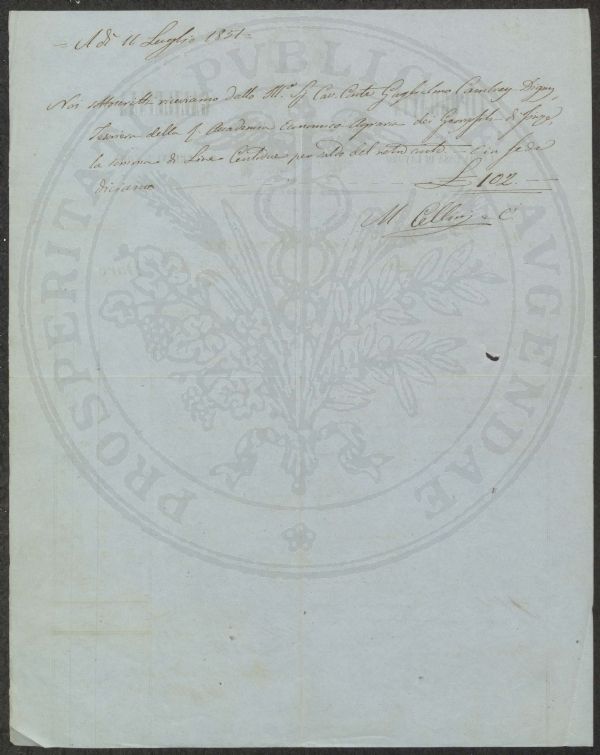 = A dì 11 Luglio 1851 =
Noi sottoscritti riceviamo dallo Ill.º Sig. Cav. Conte Guglielmo Cambray Digny,
Tesoriere della I. Accademia Economico Agraria dei Georgofili di Firenze
la somma di Lire Centodue per saldo del conto e in fede
diciamo L 102. —
M. Cellini e C.
PROSPERITATI PUBLICAE AUGENDAE